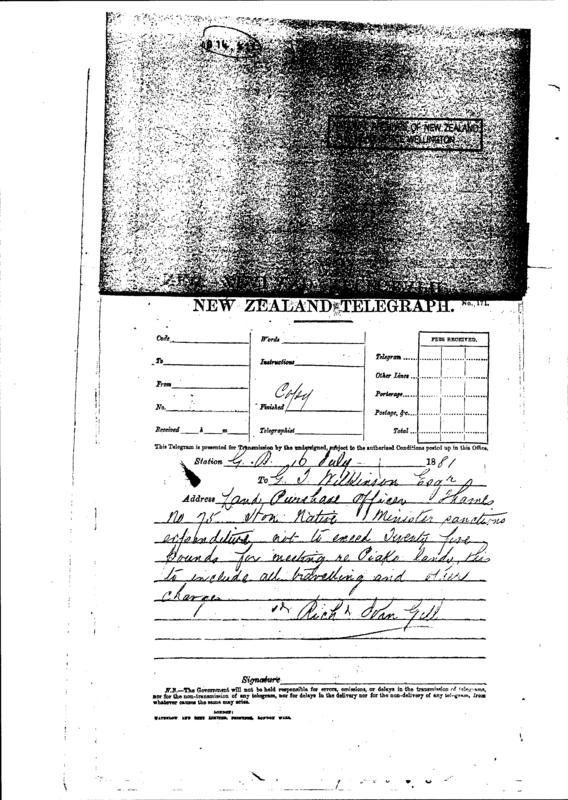 OF NEW ZEALAND
WELLINGTON
NEW ZEALAND TELEGRAPH.
No. 171.
Code
Words
FEES RECEIVED.
To
Instructions
Telegram
Other Lines
From
Copy
Porterage
No.
Finished
Postage, &c.
Received h m
Telegraphist
Total
This Telegram is presented for Transmission by the undersigned, subject to the authorised Conditions posted up in this Office.
Station G. B. 16 July 1881
To G. T. Wilkinson Esqr
Address Land Purchase Officer Thames
No 75. Hon Native Minister sanctions
expenditure not to exceed Twenty five
pounds for meeting re Piako lands, this
to include all travelling and other
charges
Richd Jno Gill
Signature
N.B.—The Government will not be held responsible for errors, omissions, or delays in the transmission of telegrams,
nor for the non-transmission of any telegram, nor for delays in the delivery nor for the non-delivery of any telegram, from
whatever causes the same may arise.
LONDON:
WATERLOW AND SONS LIMITED, PRINTERS, LONDON WALL.